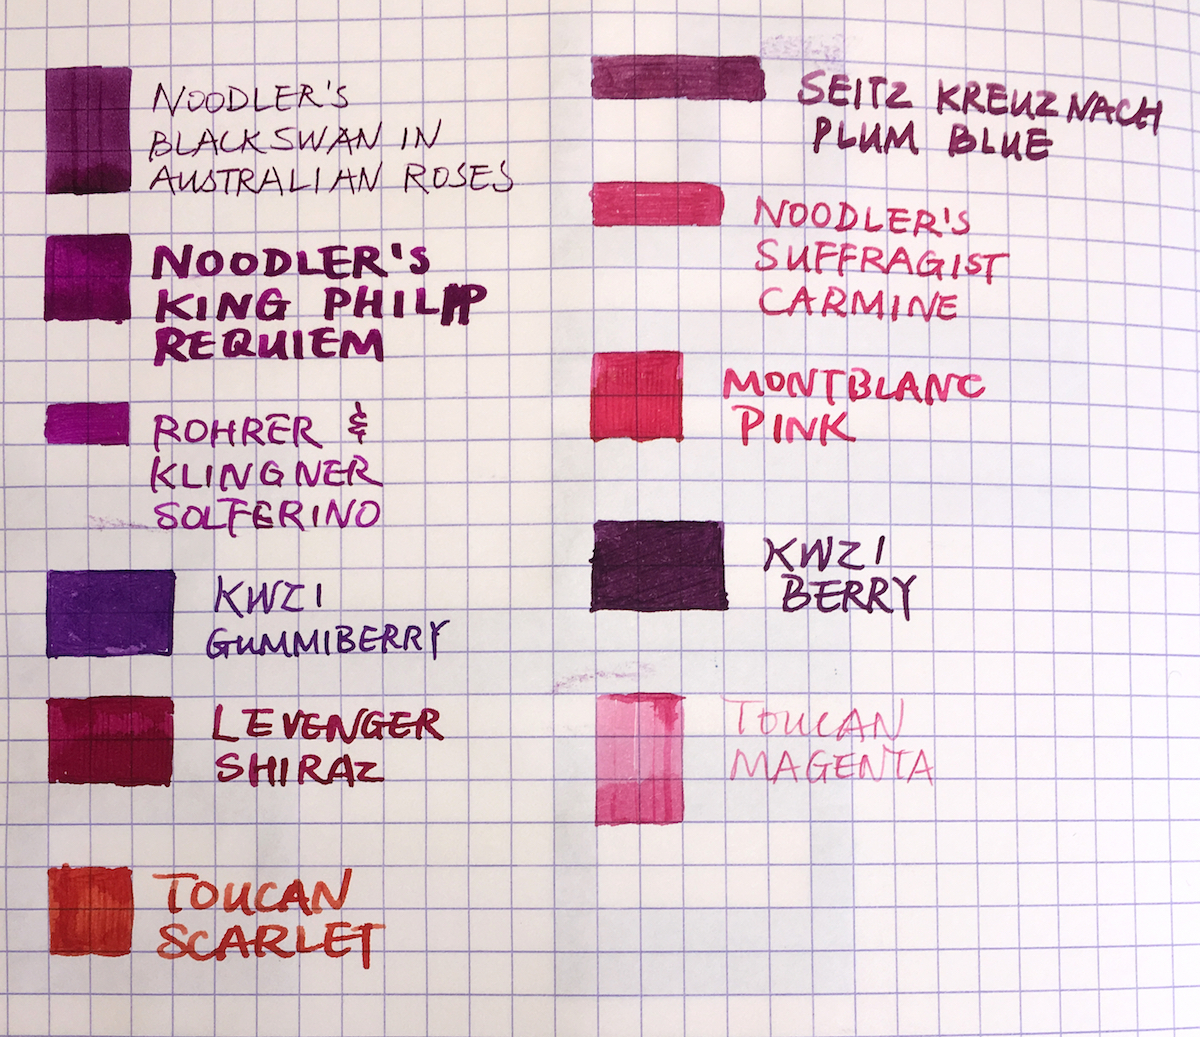 NOODLER'S
BLACK SWAN IN
AUSTRALIAN ROSES
NOODLER'S
KING PHILIP
REQUIEM
ROHRER &
KLINGNER
SOLFERINO
KWZI
GUMMIBERRY
LEVENGER
SHIRAZ
TOUCAN
SCARLET
SEITZ KREUZNACH
PLUM BLUE
NOODLER'S
SUFFRAGIST
CARMINE
MONTBLANC
PINK
KWZI
BERRY
TOUCAN
MAGENTA